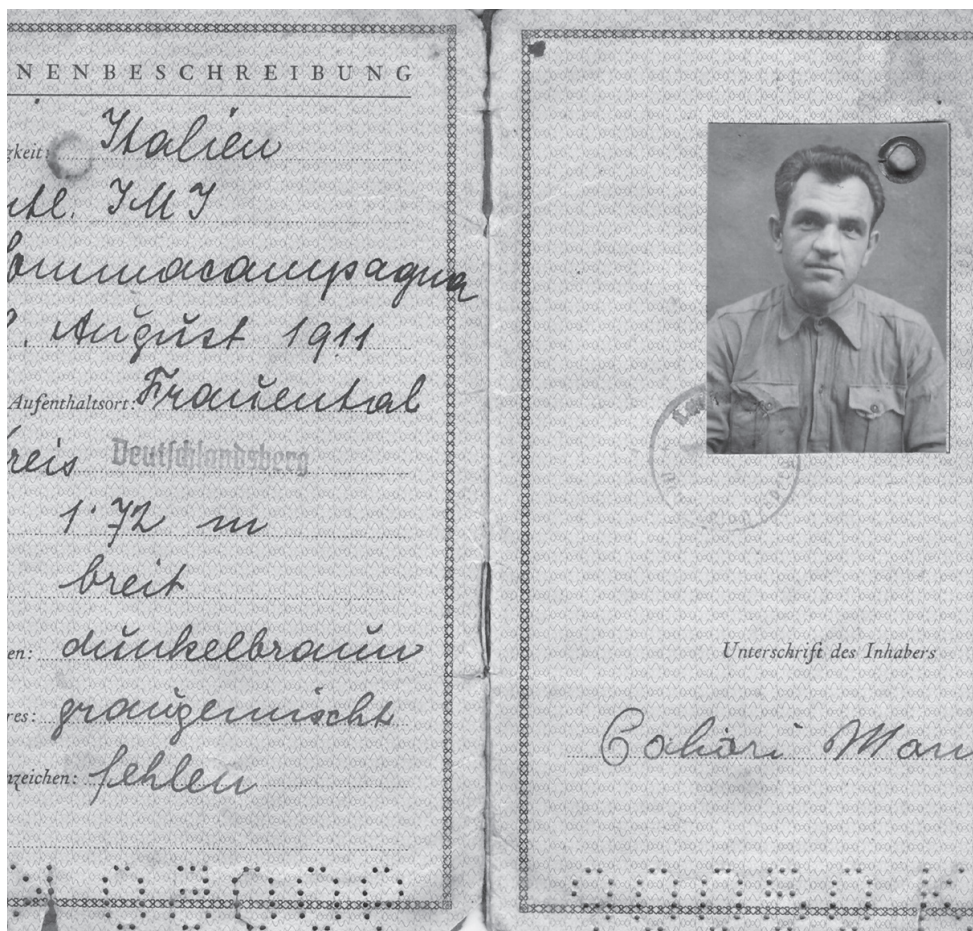 NENBESCHREIBUNG
gkeit: Italien
ntl. IMI
ommacampagna
. August 1911
Aufenthaltsort: Frauental
reis Deutschlandsberg
1·72 m
breit
en: dunkelbraun
res: graugemischt
nzeichen: fehlen
Unterschrift des Inhabers
Man